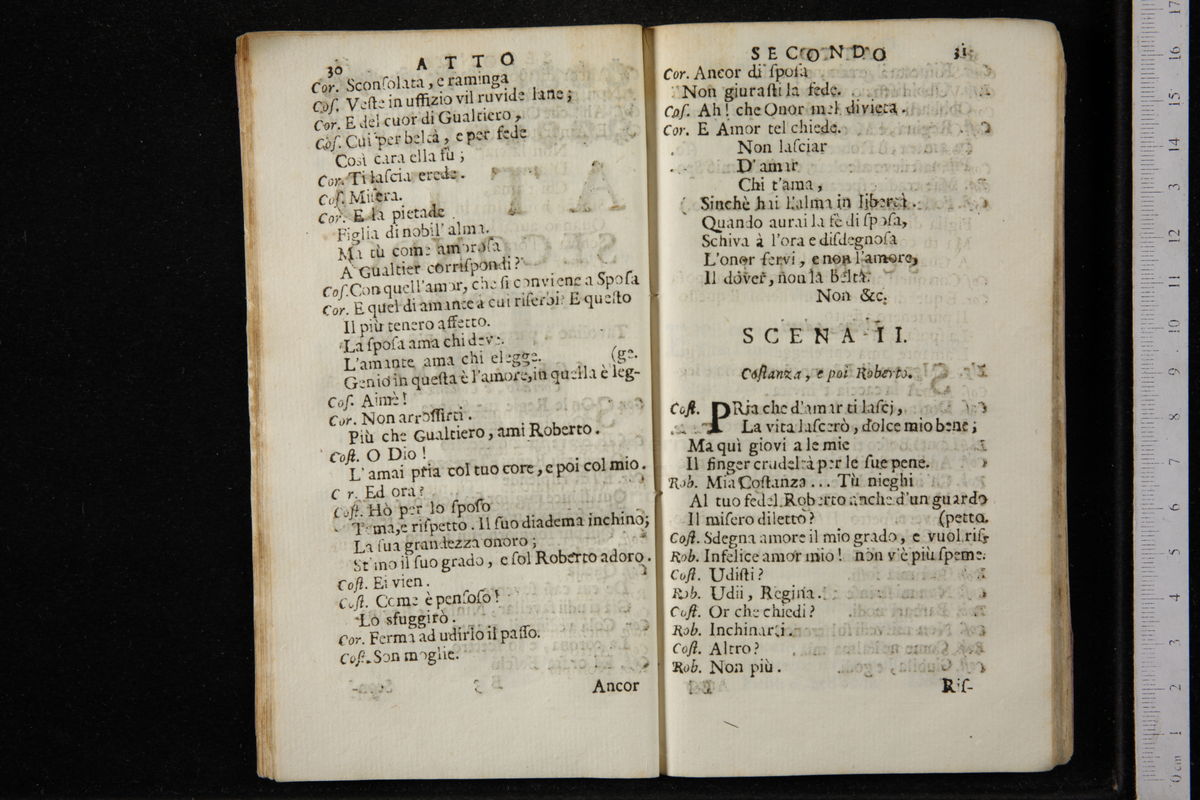 30 ATTO
Cor. Sconsolata, e raminga
Cos. Veste in uffizio vil ruvide lane;
Cor. E del cuor di Gualtiero,
Cos. Cui per beltà, e per fede
Così cara ella fù;
Cor. Ti lascia erede.
Cos. Misera.
Cor. E la pietade
Figlia di nobil' alma.
Ma tù come amorosa
A Gualtier corrispondi?
Cos. Con quell'amor, che si conviene a Sposa
Cor. E quel di amante a cui riserbi? E questo
Il più tenero affetto.
La sposa ama chi deve.
L'amante ama chi elegge. (ge.
Genio in questa è l'amore, in quella è leg-
Cos. Aimè!
Cor. Non arrossirti.
Più che Gualtiero, ami Roberto.
Cost. O Dio!
L'amai pria col tuo core, e poi col mio.
C r. Ed ora?
Cost. Hò per lo sposo
Tema, e rispetto. Il suo diadema inchino;
La sua grandezza onoro;
Stimo il suo grado, e sol Roberto adoro.
Cost. Ei vien.
Cost. Come è pensoso!
Lo sfuggirò.
Cor. Ferma ad udirlo il passo.
Cost. Son moglie.
B 3 Ancor
SECONDO 31
Cor. Ancor di sposa
Non giurasti la fede.
Cos. Ah! che Onor mel divieta.
Cor. E Amor tel chiede.
Non lasciar
D'amar
Chi t'ama,
Sinchè hai l'alma in libertà.
Quando aurai la fè di sposa,
Schiva à l'ora e disdegnosa
L'onor servi, e non l'amore,
Il dover, non la beltà.
Non &c.
SCENA II.
Costanza, e poi Roberto.
Cost. PRia che d'amar ti lasci,
La vita lascerò, dolce mio bene;
Ma quì giovi a le mie
Il finger crudeltà per le sue pene.
Rob. Mia Costanza... Tù nieghi
Al tuo fedel Roberto anche d'un guardo
Il misero diletto? (petto.
Cost. Sdegna amore il mio grado, e vuol ris-
Rob. Infelice amor mio! non v'è più speme.
Cost. Udisti?
Rob. Udii, Regina.
Cost. Or che chiedi?
Rob. Inchinarti.
Cost. Altro?
Rob. Non più.
Ris-